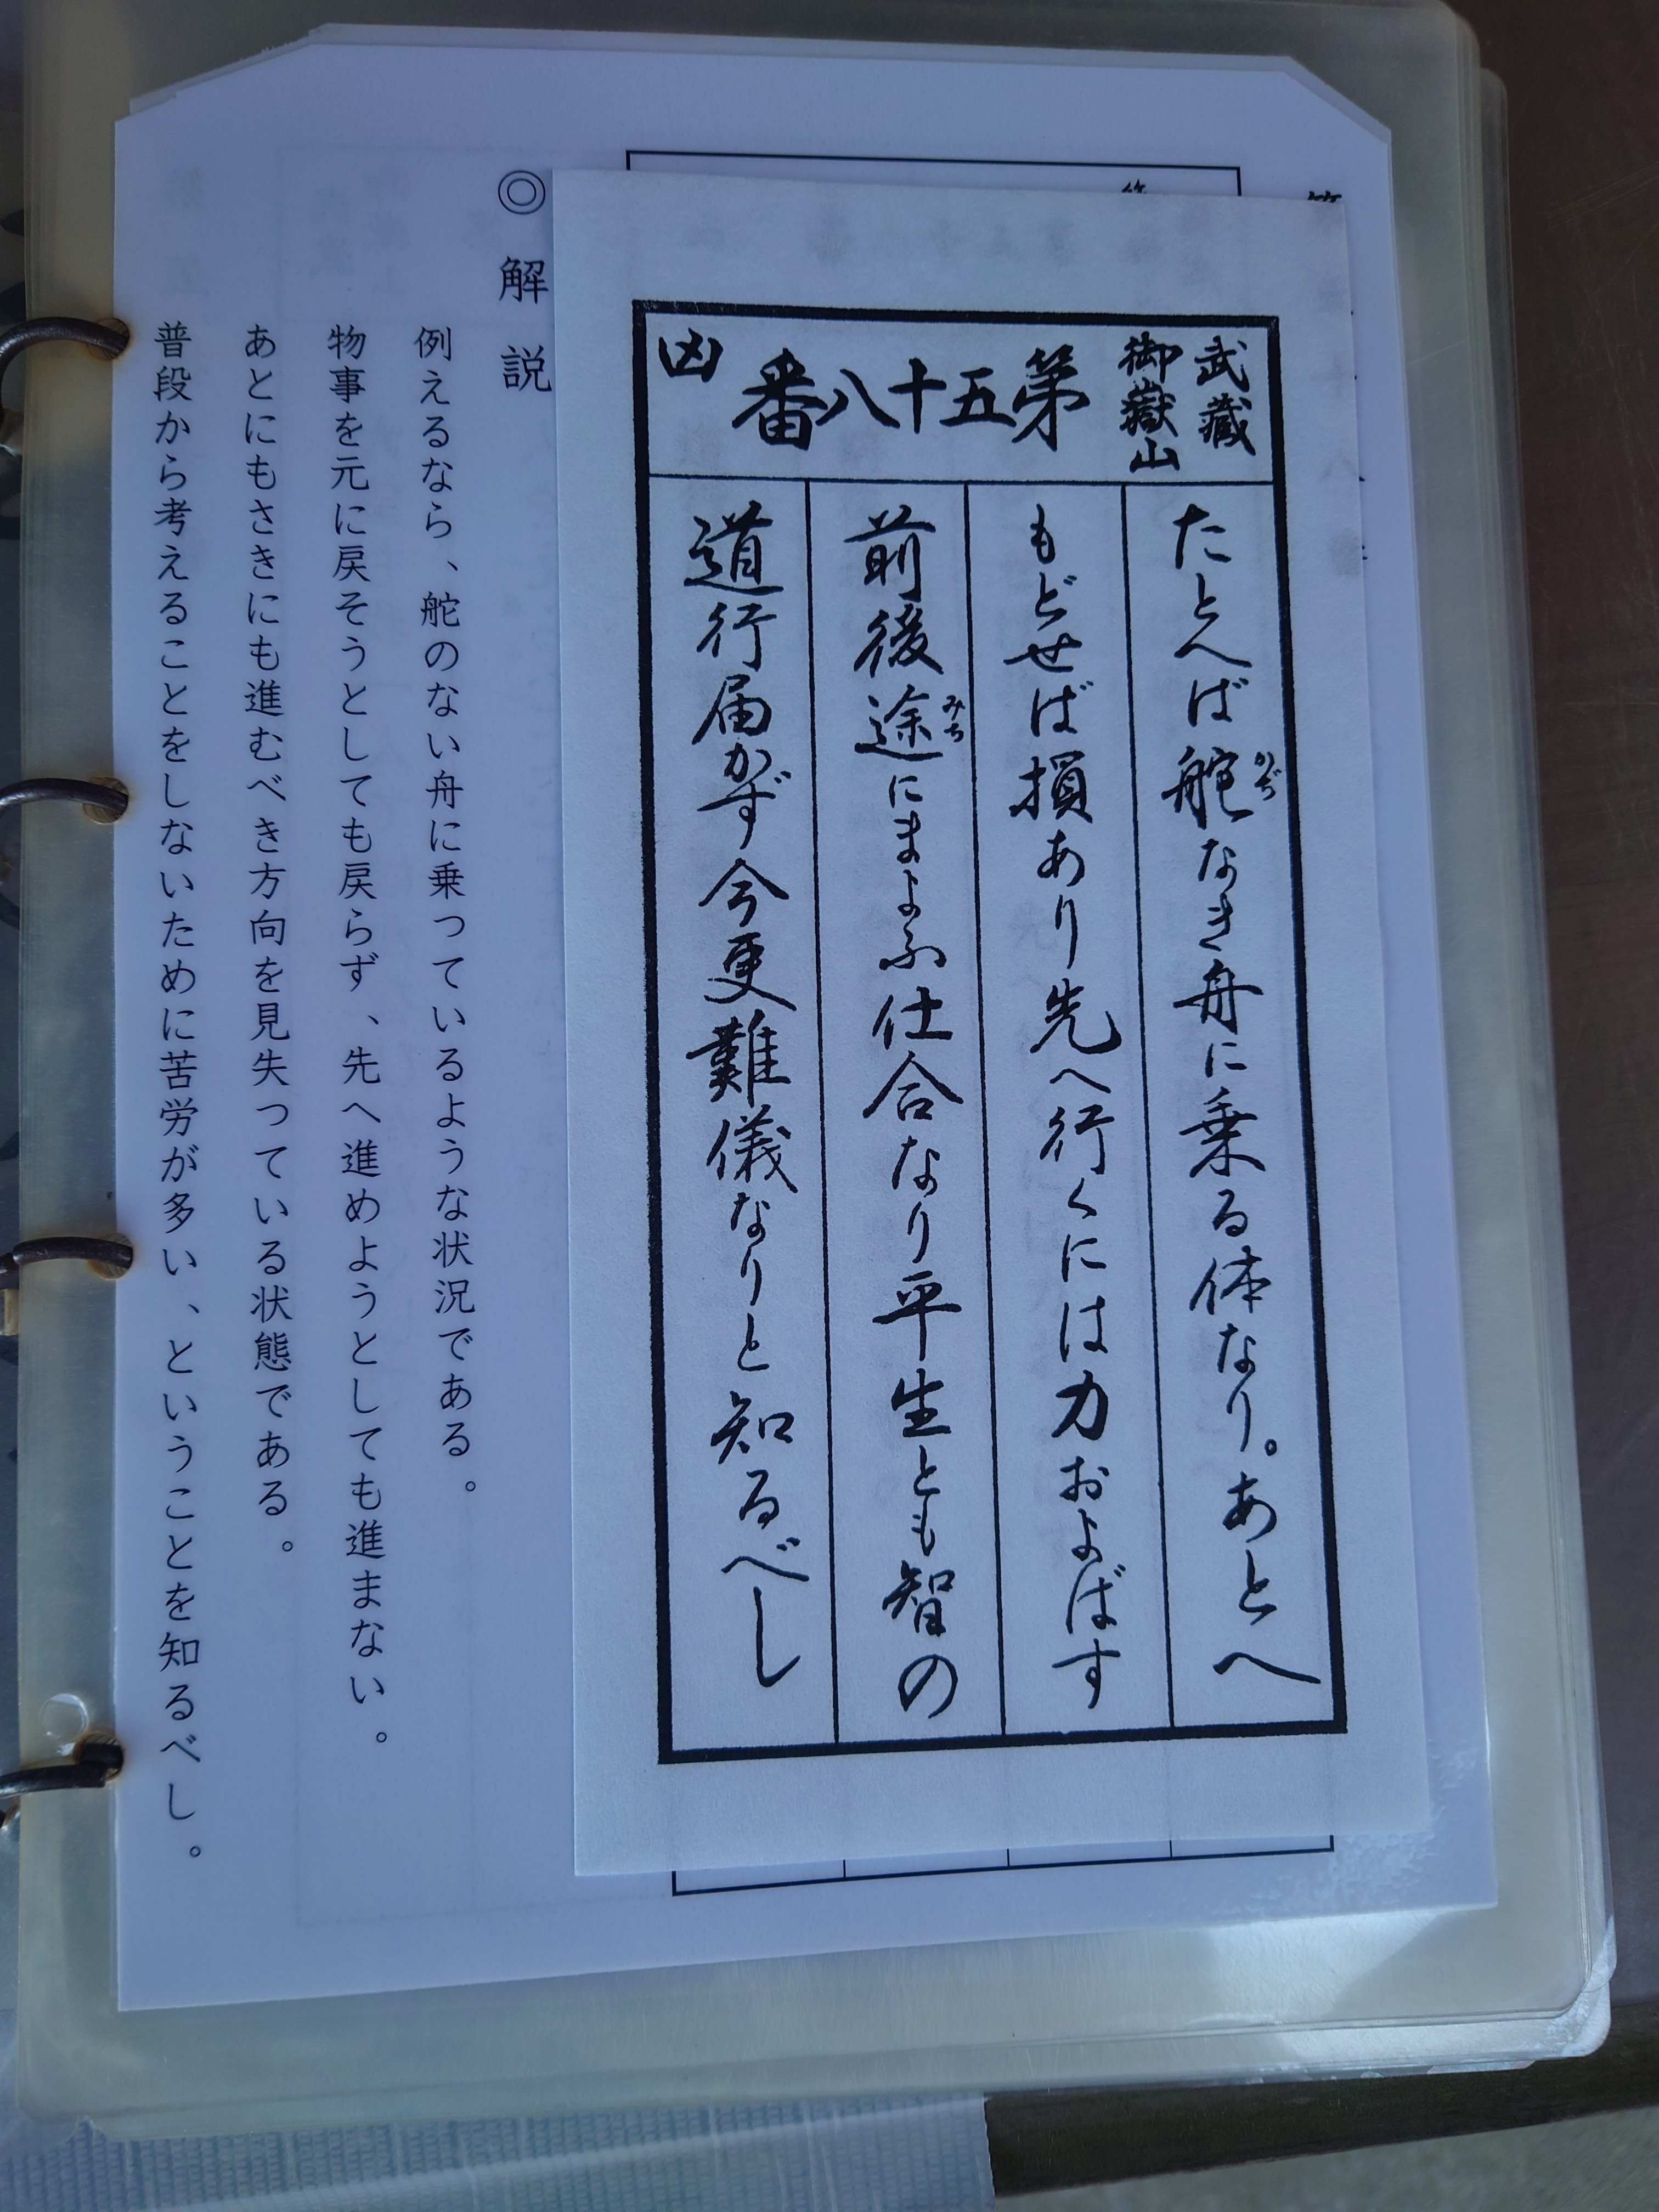 武蔵
御嶽山
第五十八番
凶
たとへば舵なき舟に乗る体なり。あとへ
かぢ
もどせば損あり先へ行くには力およばす
前後途にまよふ仕合なり平生とも智の
みち
道行届かず今更難儀なりと知るべし
◎解説
例えるなら、舵のない舟に乗っているような状況である。
物事を元に戻そうとしても戻らず、先へ進めようとしても進まない。
あとにもさきにも進むべき方向を見失っている状態である。
普段から考えることをしないために苦労が多い、ということを知るべし。